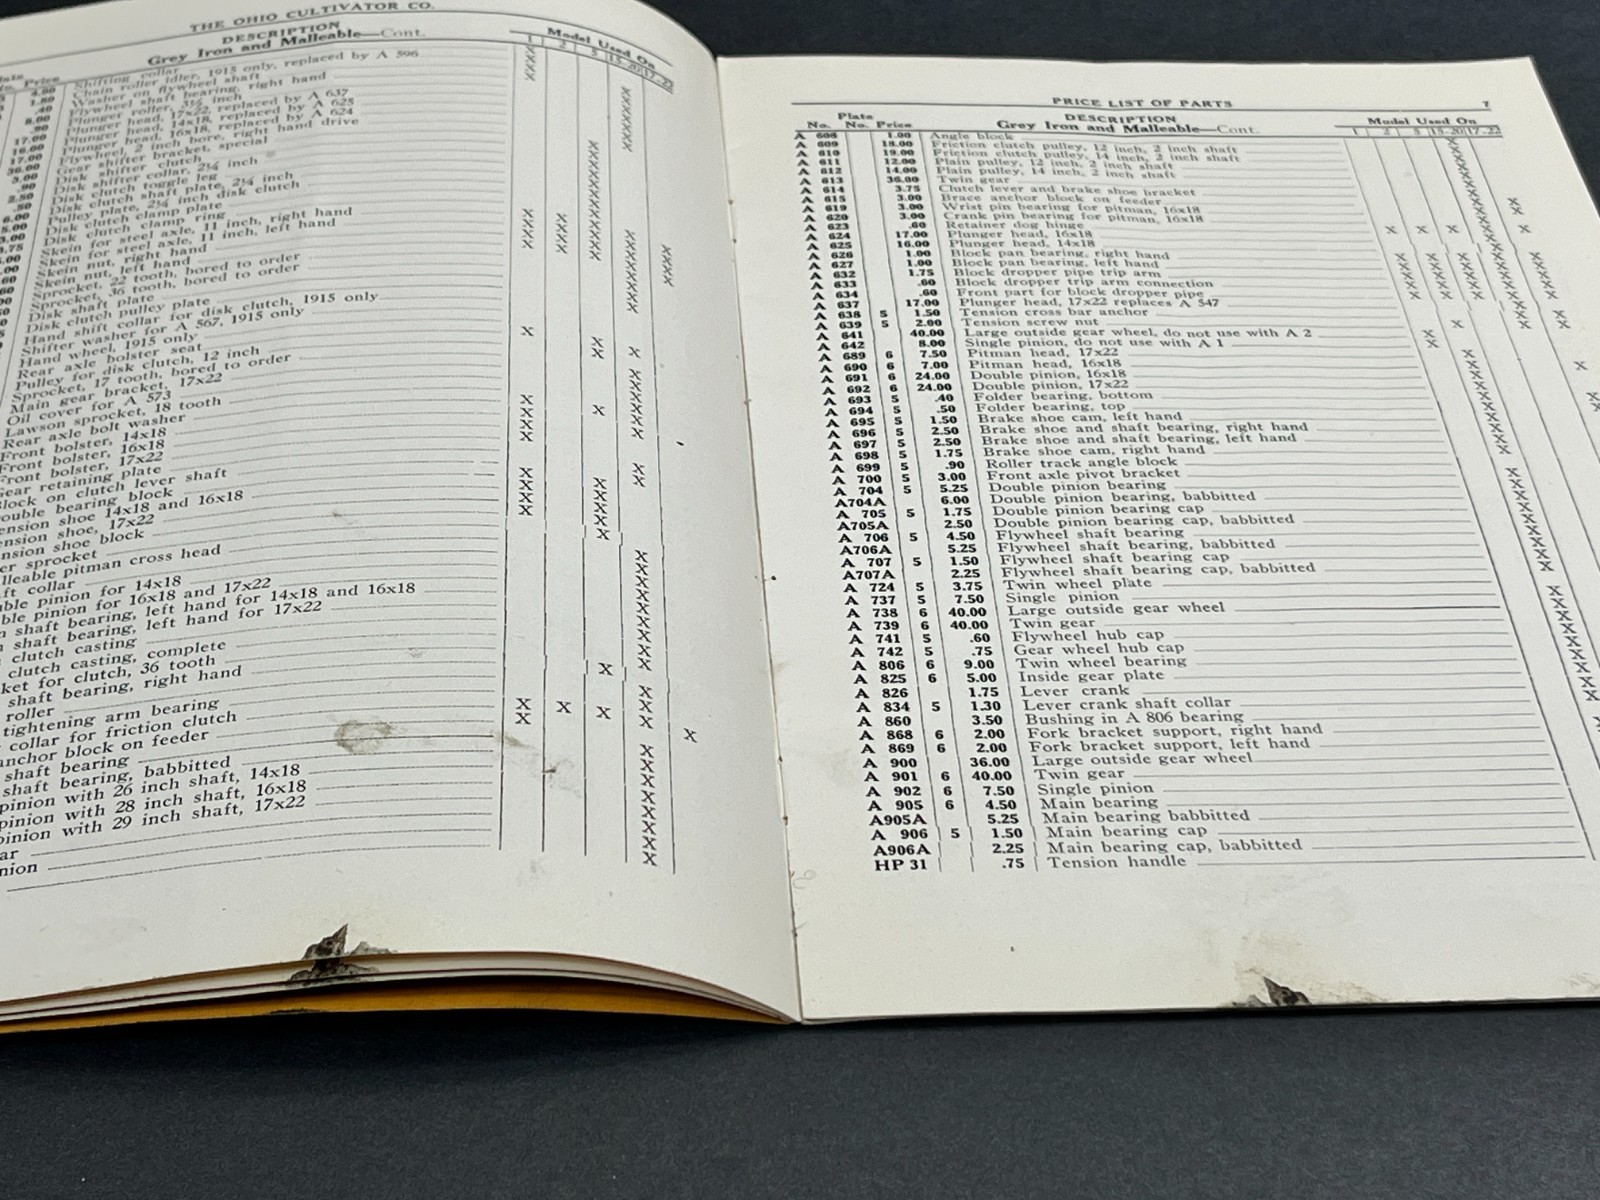 THE OHIO CULTIVATOR CO.
DESCRIPTION
Grey Iron and Malleable—Cont.
Model Used On
Price
1 2 5 15-20 17-22
4.00 Shifting collar
1.80 Chain roller idler, 1915 only, replaced by A 596
.40 Washer on flywheel shaft
8.00 Flywheel shaft bearing, right hand
.90 Plunger roller, 3½ inch
17.00 Plunger head, 17x22, replaced by A 637
16.00 Plunger head, 14x18, replaced by A 625
17.00 Plunger head, 16x18, replaced by A 624
36.00 Flywheel, 2 inch bore, right hand drive
3.00 Gear shifter bracket, special
.90 Disk shifter clutch
2.50 Disk shifter collar, 2¼ inch
.50 Disk clutch toggle leg
6.00 Disk clutch shaft plate, 2¼ inch
Pulley plate, 2¼ inch disk clutch
Disk clutch clamp plate
Disk clutch clamp ring
Skein for steel axle, 11 inch, right hand
Skein for steel axle, 11 inch, left hand
Skein nut, right hand
Skein nut, left hand
Sprocket, 22 tooth, bored to order
Sprocket, 36 tooth, bored to order
Disk shaft plate
Disk clutch pulley plate
Hand shift collar for disk clutch, 1915 only
Shifter washer for A 567, 1915 only
Hand wheel, 1915 only
Rear axle bolster seat
Pulley for disk clutch, 12 inch
Sprocket, 17 tooth, bored to order
Main gear bracket, 17x22
Oil cover for A 573
Lawson sprocket, 18 tooth
Rear axle bolt washer
Front bolster, 14x18
Front bolster, 16x18
Front bolster, 17x22
Gear retaining plate
Block on clutch lever shaft
ouble bearing block
ension shoe 14x18 and 16x18
ension shoe, 17x22
nsion shoe block
er sprocket
lleable pitman cross head
ft collar
ble pinion for 14x18
ble pinion for 16x18 and 17x22
shaft bearing, left hand for 14x18 and 16x18
shaft bearing, left hand for 17x22
clutch casting
clutch casting, complete
ket for clutch, 36 tooth
shaft bearing, right hand
roller
tightening arm bearing
collar for friction clutch
anchor block on feeder
shaft bearing
shaft bearing, babbitted
pinion with 26 inch shaft, 14x18
pinion with 28 inch shaft, 16x18
pinion with 29 inch shaft, 17x22
ar
nion
PRICE LIST OF PARTS 7
No. Plate No. Price DESCRIPTION Model Used On
Grey Iron and Malleable—Cont. 1 2 5 15-20 17-22
A 608 1.00 Angle block
A 609 18.00 Friction clutch pulley, 12 inch, 2 inch shaft
A 610 19.00 Friction clutch pulley, 14 inch, 2 inch shaft
A 611 12.00 Plain pulley, 12 inch, 2 inch shaft
A 612 14.00 Plain pulley, 14 inch, 2 inch shaft
A 613 36.00 Twin gear
A 614 3.75 Clutch lever and brake shoe bracket
A 615 3.00 Brace anchor block on feeder
A 619 3.00 Wrist pin bearing for pitman, 16x18
A 620 3.00 Crank pin bearing for pitman, 16x18
A 623 .60 Retainer dog hinge
A 624 17.00 Plunger head, 16x18
A 625 16.00 Plunger head, 14x18
A 626 1.00 Block pan bearing, right hand
A 627 1.00 Block pan bearing, left hand
A 632 1.75 Block dropper pipe trip arm
A 633 .60 Block dropper trip arm connection
A 634 .60 Front part for block dropper pipe
A 637 17.00 Plunger head, 17x22 replaces A 547
A 638 5 1.50 Tension cross bar anchor
A 639 5 2.00 Tension screw nut
A 641 40.00 Large outside gear wheel, do not use with A 2
A 642 8.00 Single pinion, do not use with A 1
A 689 6 7.50 Pitman head, 17x22
A 690 6 7.00 Pitman head, 16x18
A 691 6 24.00 Double pinion, 16x18
A 692 6 24.00 Double pinion, 17x22
A 693 5 .40 Folder bearing, bottom
A 694 5 .50 Folder bearing, top
A 695 5 1.50 Brake shoe cam, left hand
A 696 5 2.50 Brake shoe and shaft bearing, right hand
A 697 5 2.50 Brake shoe and shaft bearing, left hand
A 698 5 1.75 Brake shoe cam, right hand
A 699 5 .90 Roller track angle block
A 700 5 3.00 Front axle pivot bracket
A 704 5 5.25 Double pinion bearing
A704A 6.00 Double pinion bearing, babbitted
A 705 5 1.75 Double pinion bearing cap
A705A 2.50 Double pinion bearing cap, babbitted
A 706 5 4.50 Flywheel shaft bearing
A706A 5.25 Flywheel shaft bearing, babbitted
A 707 5 1.50 Flywheel shaft bearing cap
A707A 2.25 Flywheel shaft bearing cap, babbitted
A 724 5 3.75 Twin wheel plate
A 737 5 7.50 Single pinion
A 738 6 40.00 Large outside gear wheel
A 739 6 40.00 Twin gear
A 741 5 .60 Flywheel hub cap
A 742 5 .75 Gear wheel hub cap
A 806 6 9.00 Twin wheel bearing
A 825 6 5.00 Inside gear plate
A 826 1.75 Lever crank
A 834 5 1.30 Lever crank shaft collar
A 860 3.50 Bushing in A 806 bearing
A 868 6 2.00 Fork bracket support, right hand
A 869 6 2.00 Fork bracket support, left hand
A 900 36.00 Large outside gear wheel
A 901 6 40.00 Twin gear
A 902 6 7.50 Single pinion
A 905 6 4.50 Main bearing
A905A 5.25 Main bearing babbitted
A 906 5 1.50 Main bearing cap
A906A 2.25 Main bearing cap, babbitted
HP 31 .75 Tension handle